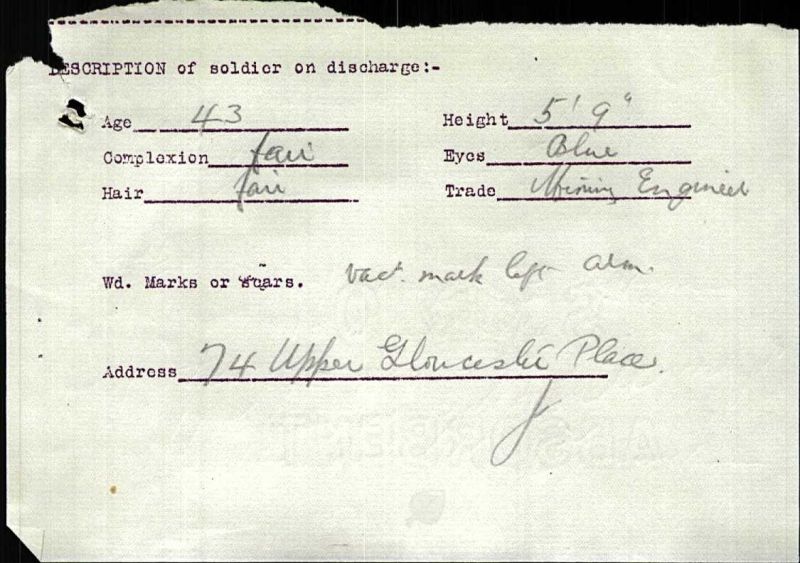 DESCRIPTION of soldier on discharge:-
Age 43 Height 5' 9"
Complexion fair Eyes Blue
Hair fair Trade Mining Engineer
Wd. Marks or scars. Vact. mark left arm.
Address 74 Upper Gloucester Place.